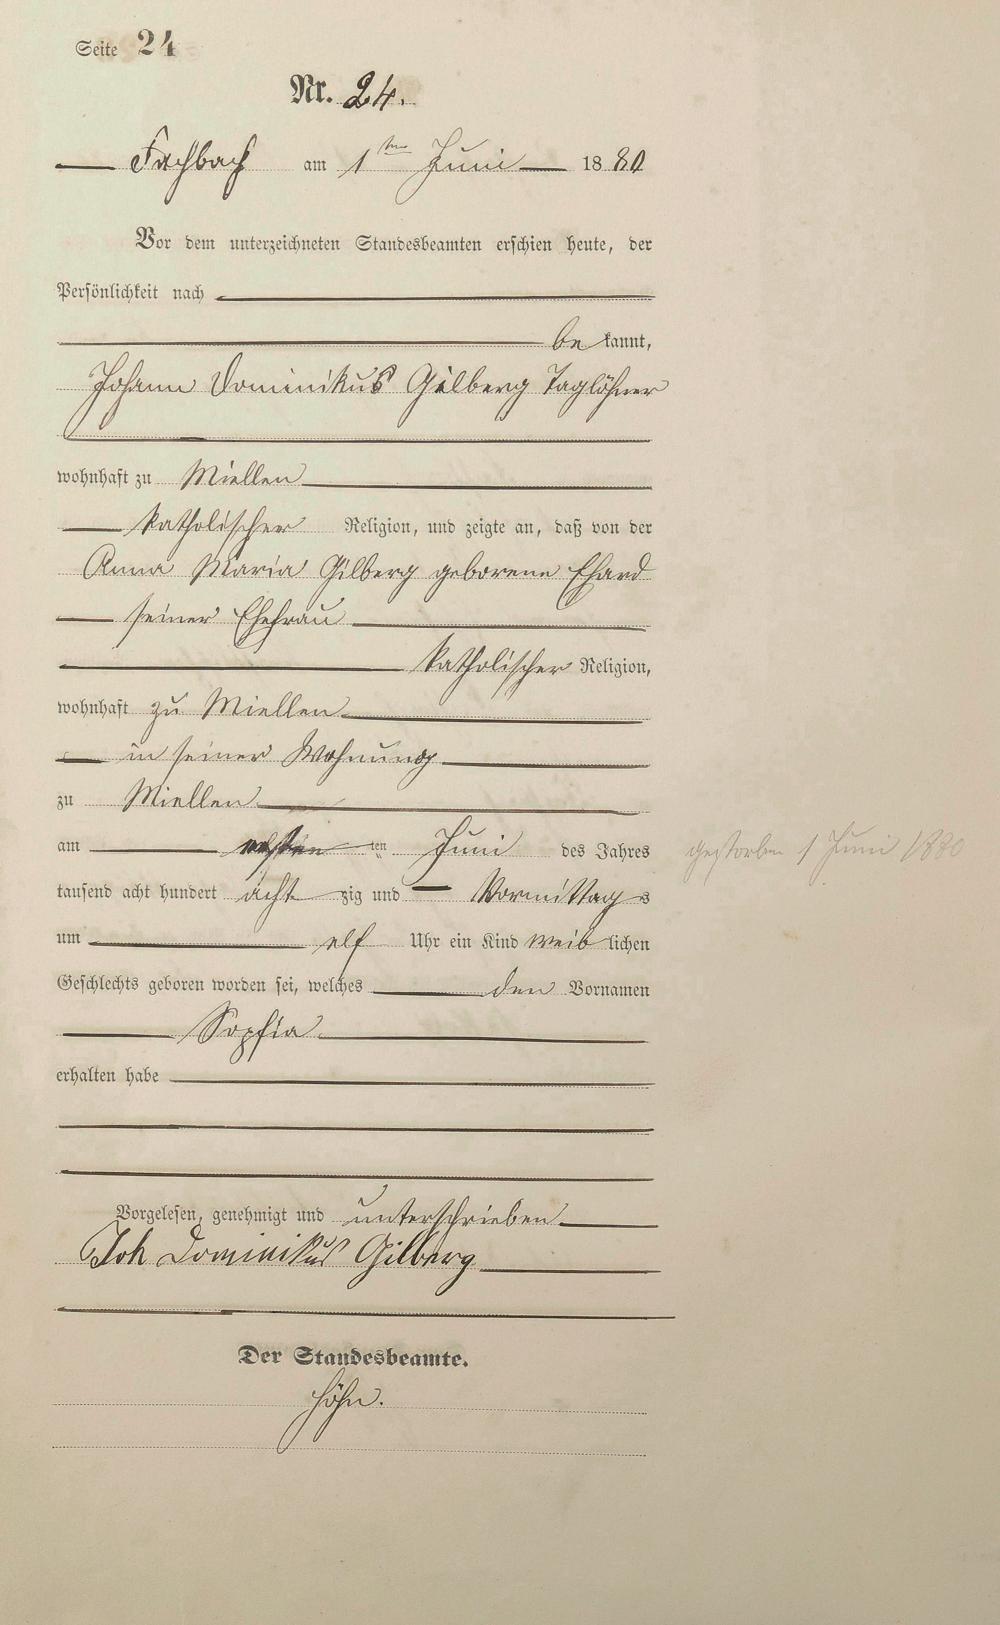 Seite 24
Nr. 24.
Fachbach am 1ten Juni 1880
Vor dem unterzeichneten Standesbeamten erschien heute, der
Persönlichkeit nach
be kannt,
Johann Dominikus Gilberg Taglöhner
wohnhaft zu Miellen
katholischer Religion, und zeigte an, daß von der
Anna Maria Gilberg geborene Ehard
seiner Ehefrau
katholischer Religion,
wohnhaft zu Miellen
in seiner Wohnung
zu Miellen
am ersten ten Juni des Jahres
gestorben 1 Juni 1880
tausend acht hundert acht zig und Vormittags
um elf Uhr ein Kind weib lichen
Geschlechts geboren worden sei, welches den Vornamen
Sopfia
erhalten habe
Vorgelesen, genehmigt und unterschrieben
Joh Dominikus Gilberg
Der Standesbeamte.
Höhn.